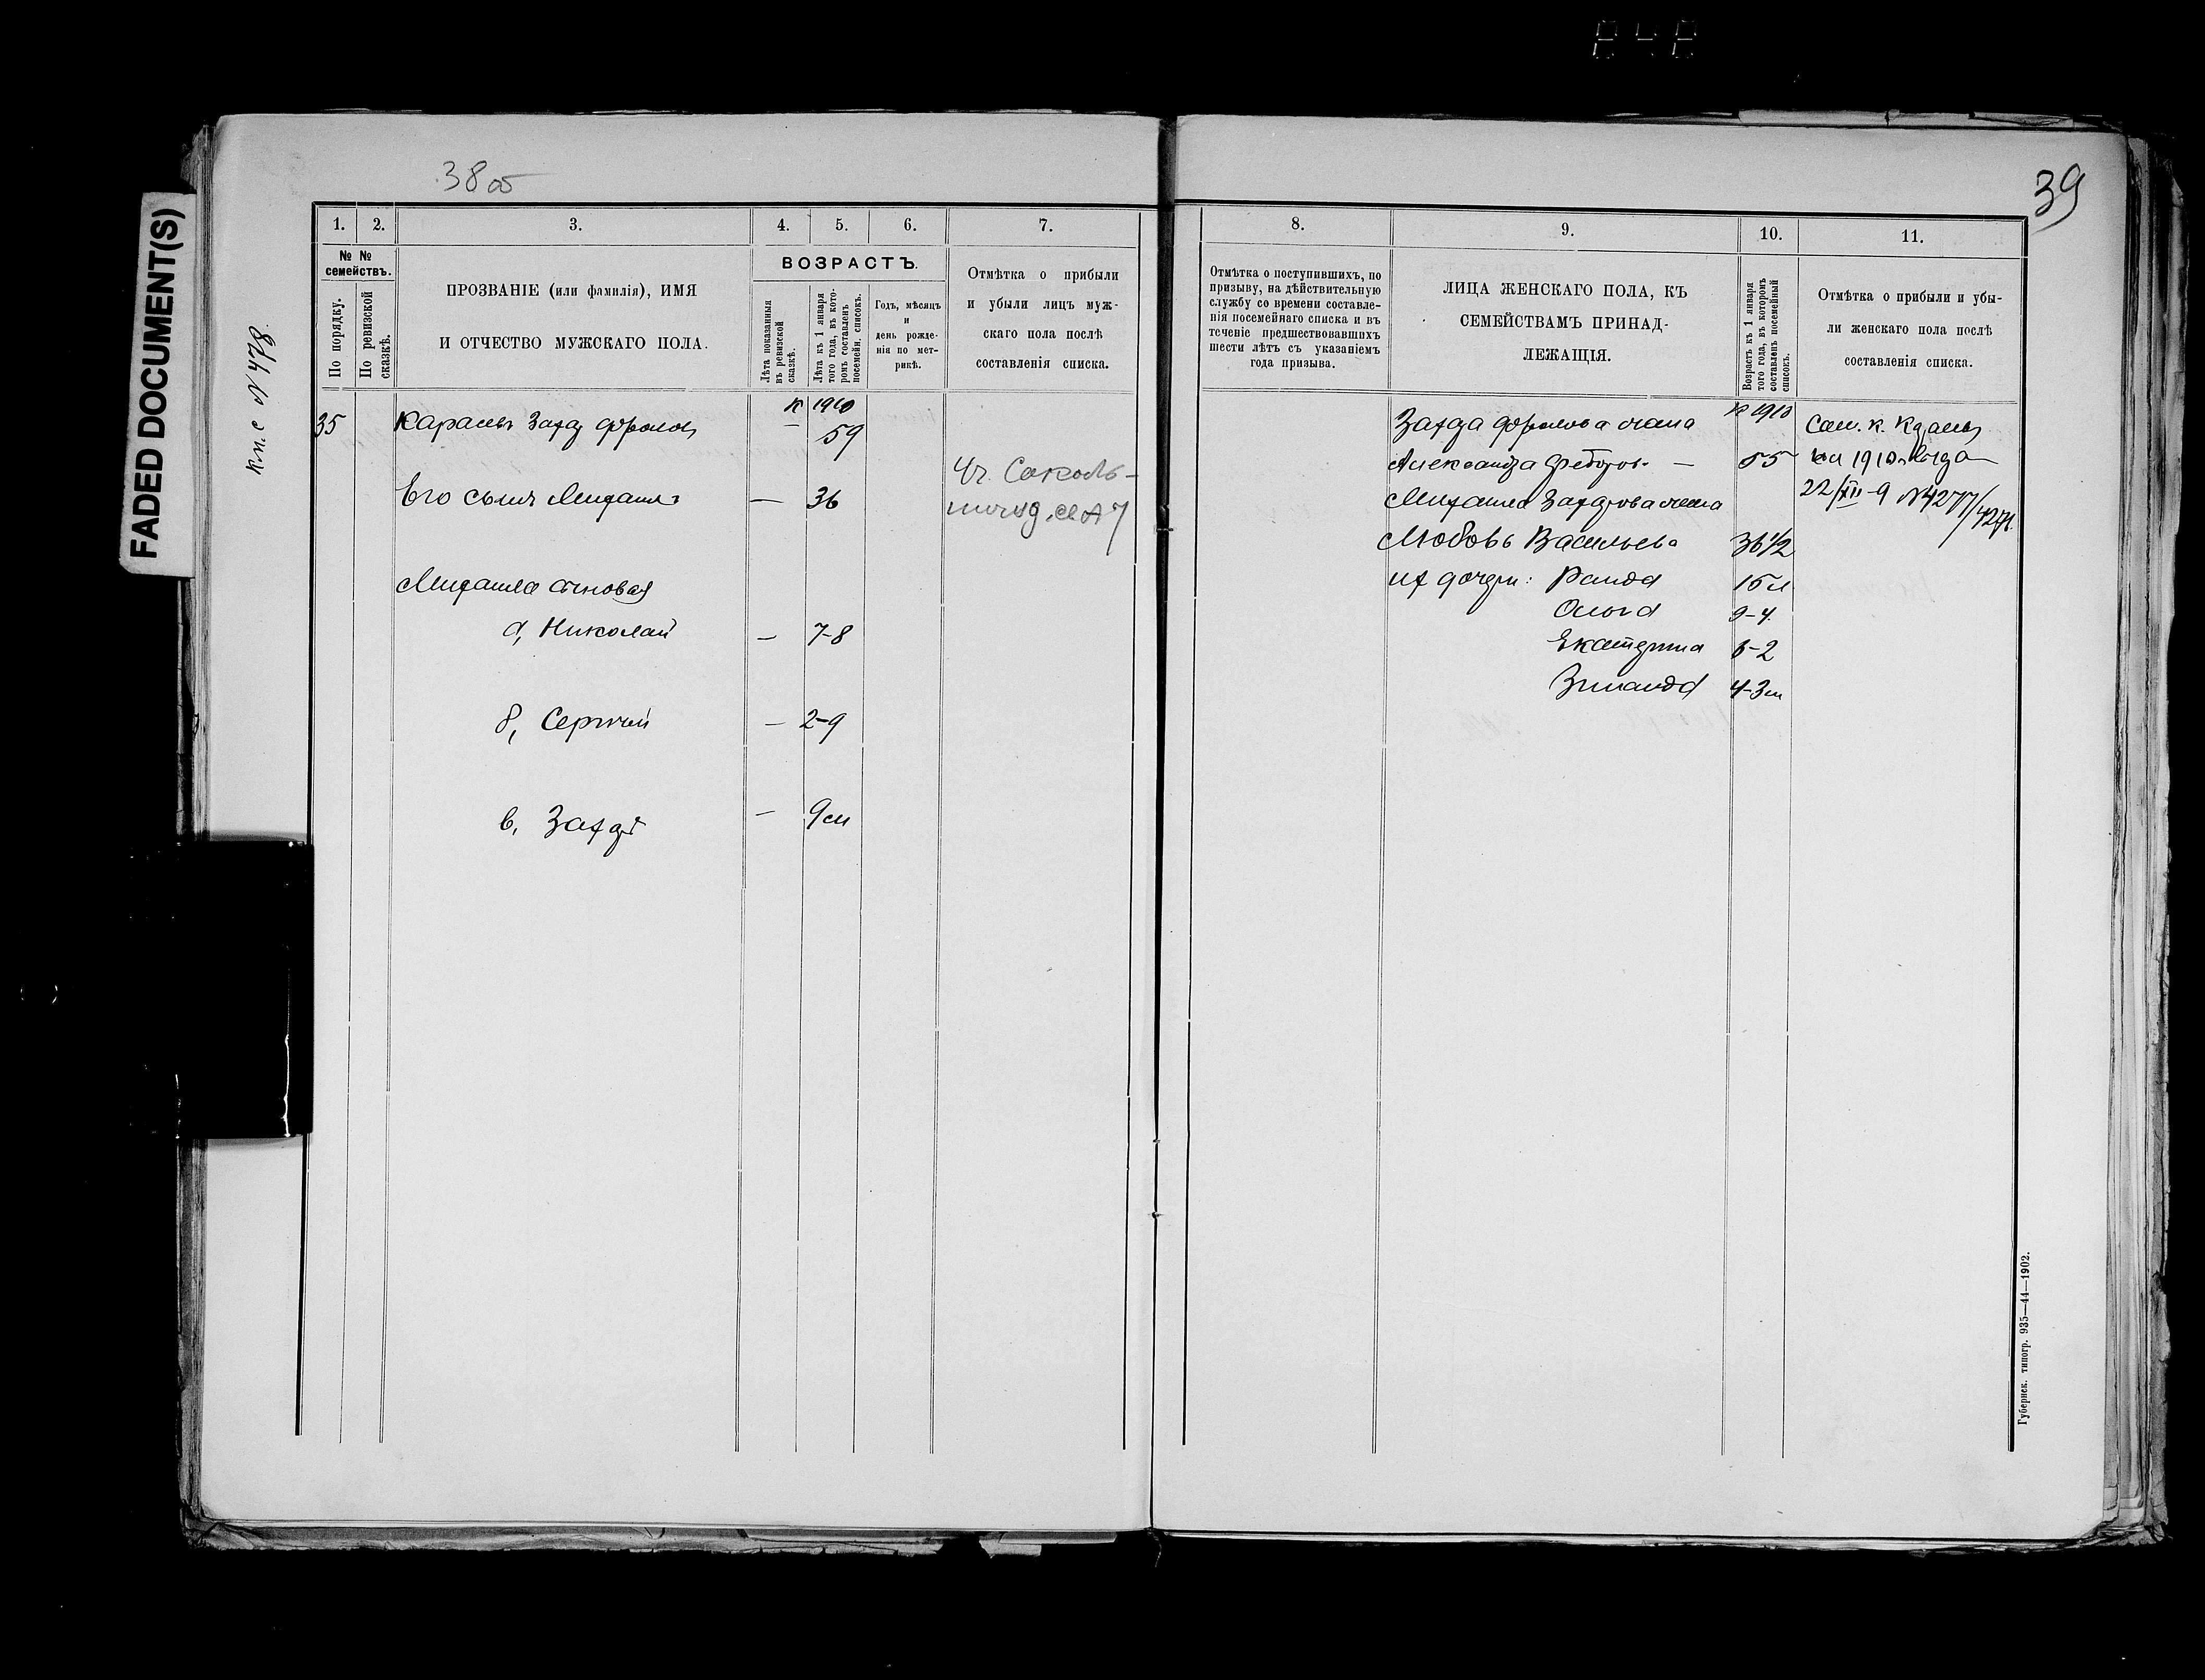 FADED DOCUMENT(S)
38 об
39
1. 2. 3. 4. 5. 6. 7.
№ № семействъ.
По порядку.
По ревизской сказкѣ.
ПРОЗВАНІЕ (или фамилія), ИМЯ
И ОТЧЕСТВО МУЖСКАГО ПОЛА.
ВОЗРАСТЪ.
Лѣта показанныя въ ревизской сказкѣ.
Лѣта къ 1 января того года, въ кото-ромъ составленъ посемейн. списокъ.
Годъ, мѣсяцъ
и
день рожде-
нія по мет-
рикѣ.
Отмѣтка о прибыли
и убыли лицъ муж-
скаго пола послѣ
составленія списка.
к 1910
35 Захар Фролов — 59
Его сынъ Михаилъ — 36
Михаила сыновья
а, Николай — 7-8
б, Сергѣй — 2-9
в, Захаръ — 9 м
8. 9. 10. 11.
Отмѣтка о поступившихъ, по
призыву, на дѣйствительную
службу со времени составле-
нія посемейнаго списка и въ
теченіе предшествовавшихъ
шести лѣтъ съ указаніемъ
года призыва.
ЛИЦА ЖЕНСКАГО ПОЛА, КЪ
СЕМЕЙСТВАМЪ ПРИНАД-
ЛЕЖАЩІЯ.
Возрастъ къ 1 января того года, въ которомъ составленъ посемейный списокъ.
Отмѣтка о прибыли и убы-
ли женскаго пола послѣ
составленія списка.
к 1910
Захара Фролова жена
Александра Федоров. — 55
Михаила Захарова жена
Любовь Васильева 36 1/2
их дочери: Раида 15 л
Ольга 9-4
Екатерина 6-2
Зинаида 4-3 м
22/XII-9 №4277/4278.
Губернск. типогр. 935—44—1902.